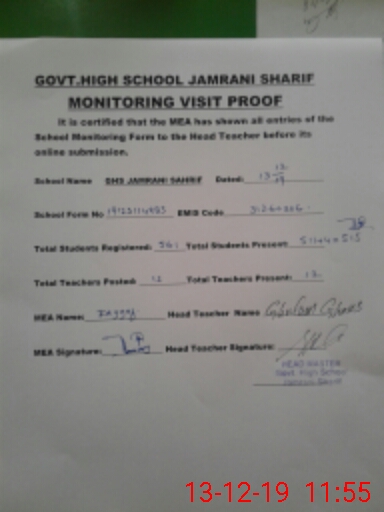 GOVT.HIGH SCHOOL JAMRANI SHARIF
MONITORING VISIT PROOF
It is certified that the MEA has shown all entries of the
School Monitoring Form to the Head Teacher before its
online submission.
School Name GHS JAMRANI SAHRIF Dated: 13-12-19
School Form No EMIS Code
Total Students Registered: 561 Total Students Present: 511+4=515
Total Teachers Posted: 12 Total Teachers Present: 12
MEA Name: Head Teacher Name Ghulam
MEA Signature: Head Teacher Signature:
HEAD MASTER
Govt. High School
Jamrani Sharif
13-12-19 11:55